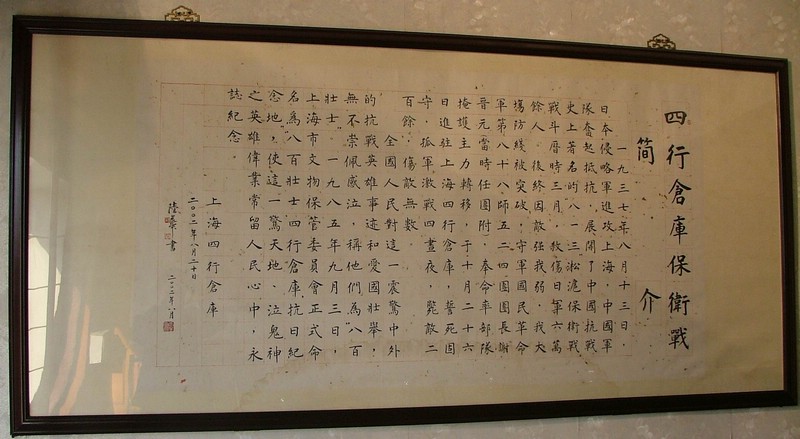 四行倉庫保衛戰
简介
一九三七年八月十三日，
日本侵略軍進攻上海，中國軍
隊奮起抵抗，展開了中國抗戰
史上著名的八一三淞滬保衛戰
戰斗曆時三月，殺傷日軍六萬
餘人。後終因敵强我弱，我大
場防綫被突破，守軍國民革命
軍第八十八師五二四團團長謝
晉元當時任團附，奉命率部隊
掩護主力轉移，于十月二十六
日進駐上海四行倉庫，誓死固
守，孤軍激戰四晝夜，斃敵二
百餘，傷敵無數。
全國人民對這一震驚中外
的抗戰英雄事迹和愛國壯舉，
無不崇佩感泣，稱他們為"八百
壯士"。一九八五年九月三日，
上海市文物保管委員會正式命
名為"八百壯士四行倉庫抗日紀
念地"，使這一驚天地、泣鬼神
之英雄偉業常留人民心中，永
誌紀念。
上海四行倉庫
二〇〇二年八月二十日